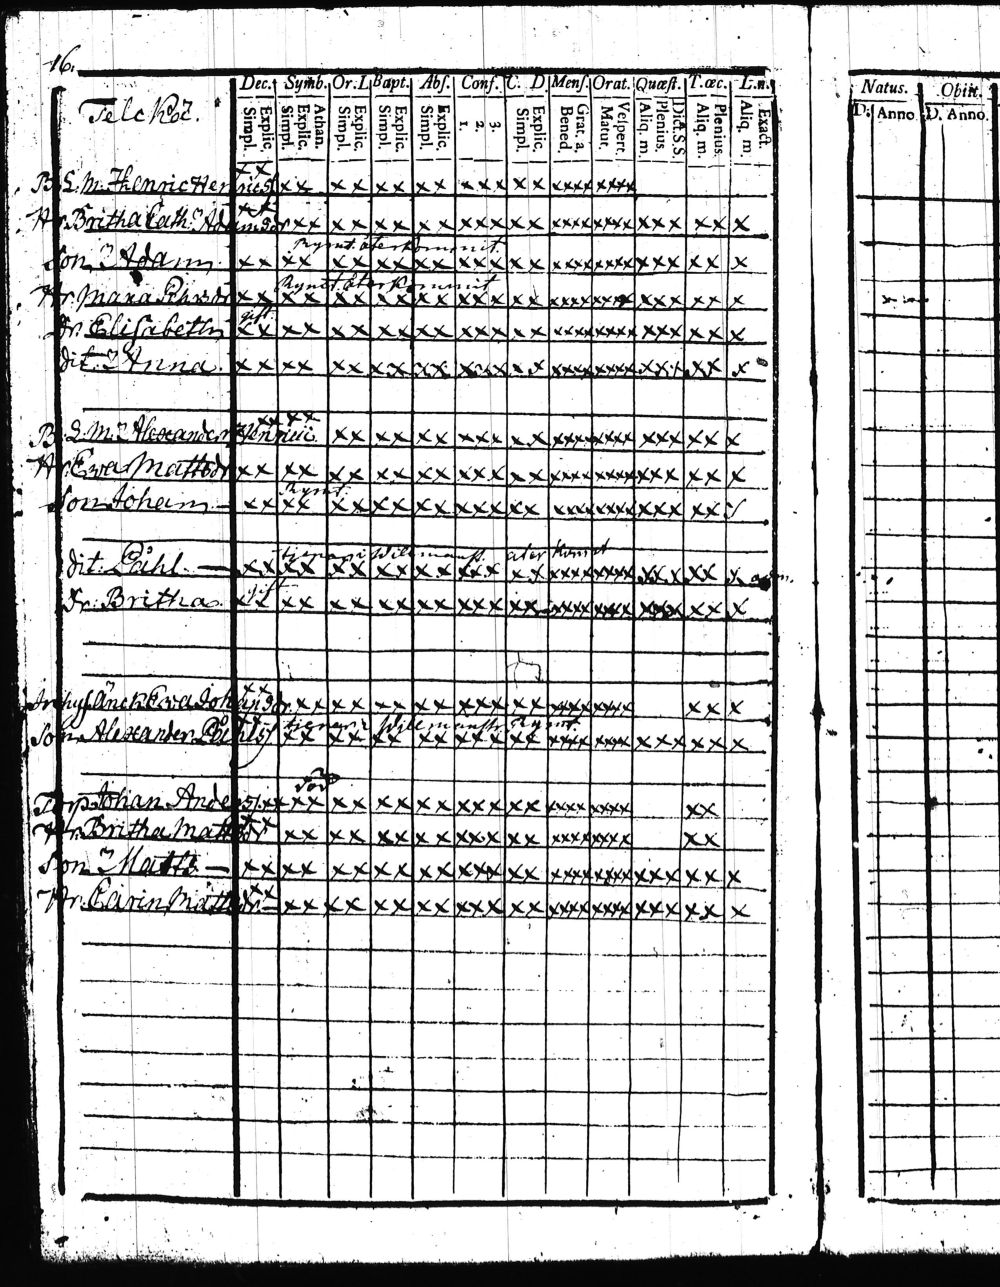 16.
Dec. Symb. Or. L Bapt. Abs. Conf. C. D Mens. Orat. Quæst. T. œc. L.n.
Simpl. Explic. Simpl. Explic. Athan. Simpl. Explic. Simpl. Explic. Simpl. Explic. 1. 2. 3. Simpl. Explic. Bened. Grat. a. Matut. Vespert. Aliq. m. Plenius. Dict. S.S. Aliq. m. Plenius. Aliq. m. Exact.
Natus. Obiit.
D. Anno. D. Anno.
B. L. M. Henric Henrics
xx
Hr. Britha Cath. Adamsdr xx xx xx xx xxx xx xxxx xxxx xxx xx x
Rymt. återkommit
Son Adam xx xx xx xx xx xxx xx xxxx xxxx xxx xx x
Rymt återkommit
Hr. Maria xx xx xx xx xx xxx xx xxxx xxxx xxx xx x
gift
Dr. Elisabeth xx xx xx xx xx xxx xx xxxx xxxx xxx xx x
dit. Anna xx xx xx xx xx xxx xx xxxx xxxx xxx xx x
B. L. M. Alexander Henrici xx xx xx xx xxx xx xxxx xxxx xxx xx x
Hr. Eva Mattsdr xx xx xx xx xx xxx xx xxxx xxxx xxx xx x
Rymt
Son Joham xx xx xx xx xx xxx xx xxxx xxxx xxx xx
återkomit
dit. Påhl xx xx xx xx xx xxx xx xxxx xxxx xxx xx x
gift
Dr. Britha xx xx xx xx xx xxx xx xxxx xxxx xxx xx x
Inhys Änck Eva Johansdr xx xx xx xx xxx xx xxxx xxxx xx x
tienar i Willmanst. Rymt
Son Alexander Påhls xx xx xx xx xxx xx xxxx xxxx xxx xx x
död
Torp Johan Anders xx xx xx xx xx xxx xx xxxx xxxx xx
Hr. Britha Mattsdr xx xx xx xx xxx xx xxxx xxxx xx
Son Matts xx xx xx xx xx xxx xx xxxx xxxx xxx xx x
Hr. Carin Mattsdr xx xx xx xx xxx xx xxxx xxxx xxx xx x